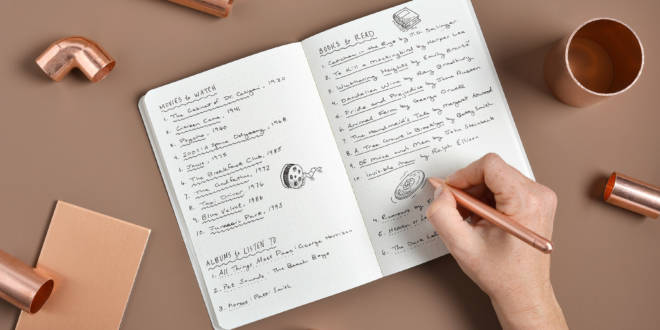 MOVIES to WATCH
1. The Cabinet of Dr. Caligari, 1920
2. Citizen Kane, 1941
3. Psycho, 1960
4. 2001: A Space Odyssey, 1968
5. Jaws, 1975
6. The Breakfast Club, 1985
7. The Godfather, 1972
8. Taxi Driver, 1976
9. Blue Velvet, 1986
10. Jurassic Park, 1993
ALBUMS to LISTEN TO
1. All Things Must Pass: George Harrison
2. Pet Sounds: The Beach Boys
3. Horses: Patti Smith
BOOKS to READ
1. Catcher in the Rye by J.D. Salinger
2. To Kill a Mockingbird by Harper Lee
3. Wuthering Heights by Emily Brontë
4. Dandelion Wine by Ray Bradbury
5. Pride and Prejudice by Jane Austen
6. Animal Farm by George Orwell
7. The Handmaid's Tale by Margaret Atwood
8. A Tree Grows in Brooklyn by Betty Smith
9. Of Mice and Men by John Steinbeck
10. Invisible Man by Ralph Ellison
4. Rumours
5.
6. The Dark